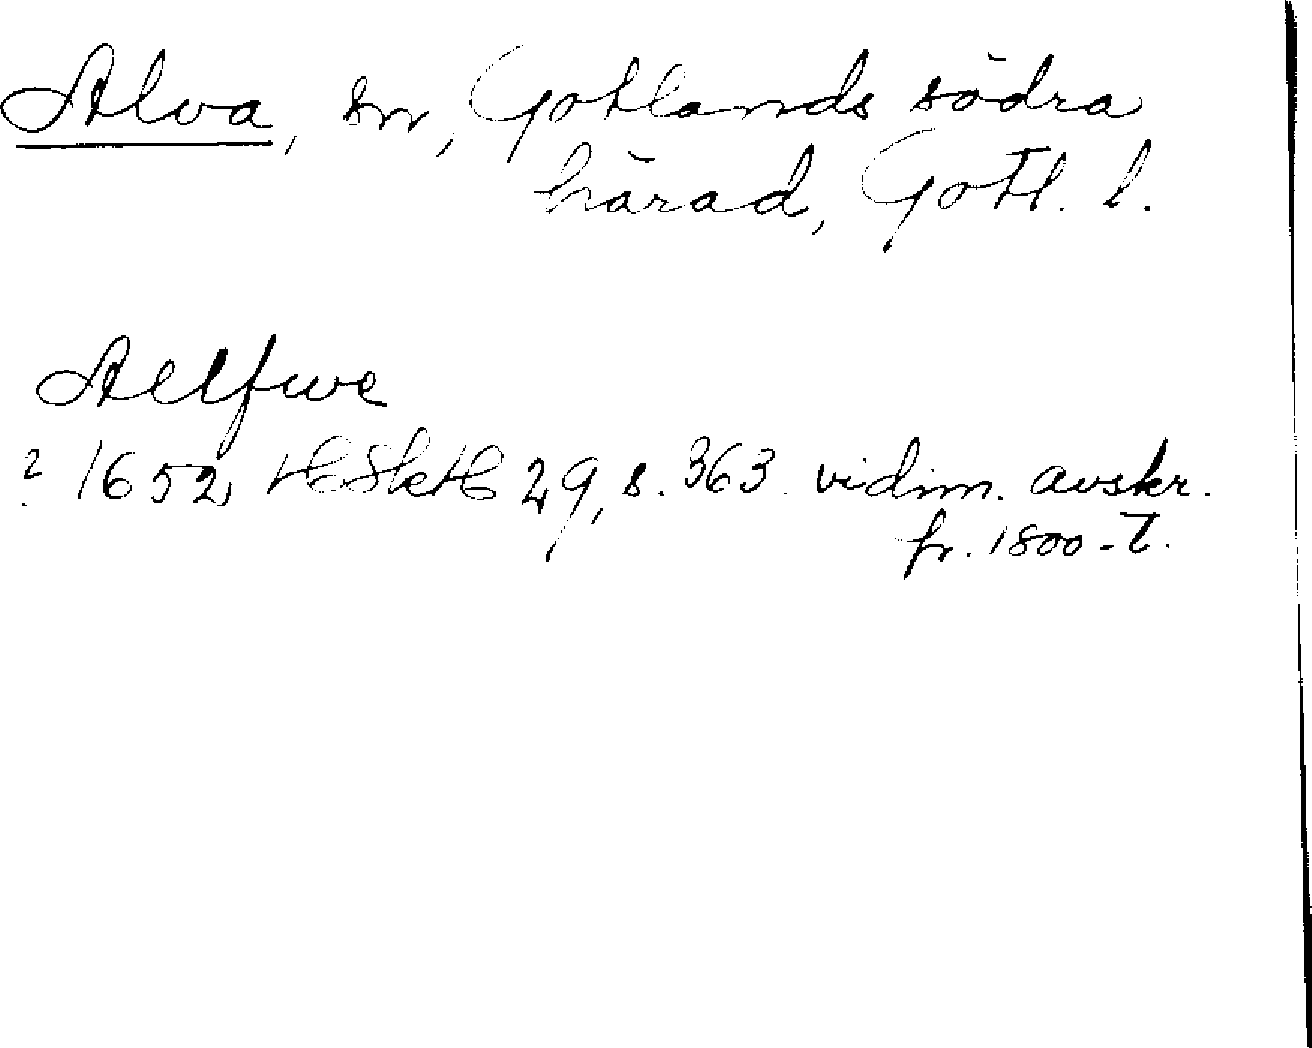 Alva, sn, Gotlands södra
härad, Gotl. l.
Aelfwe
? 1652 HSkH 29, s. 363 vidim. avskr.
fr. 1800-t.